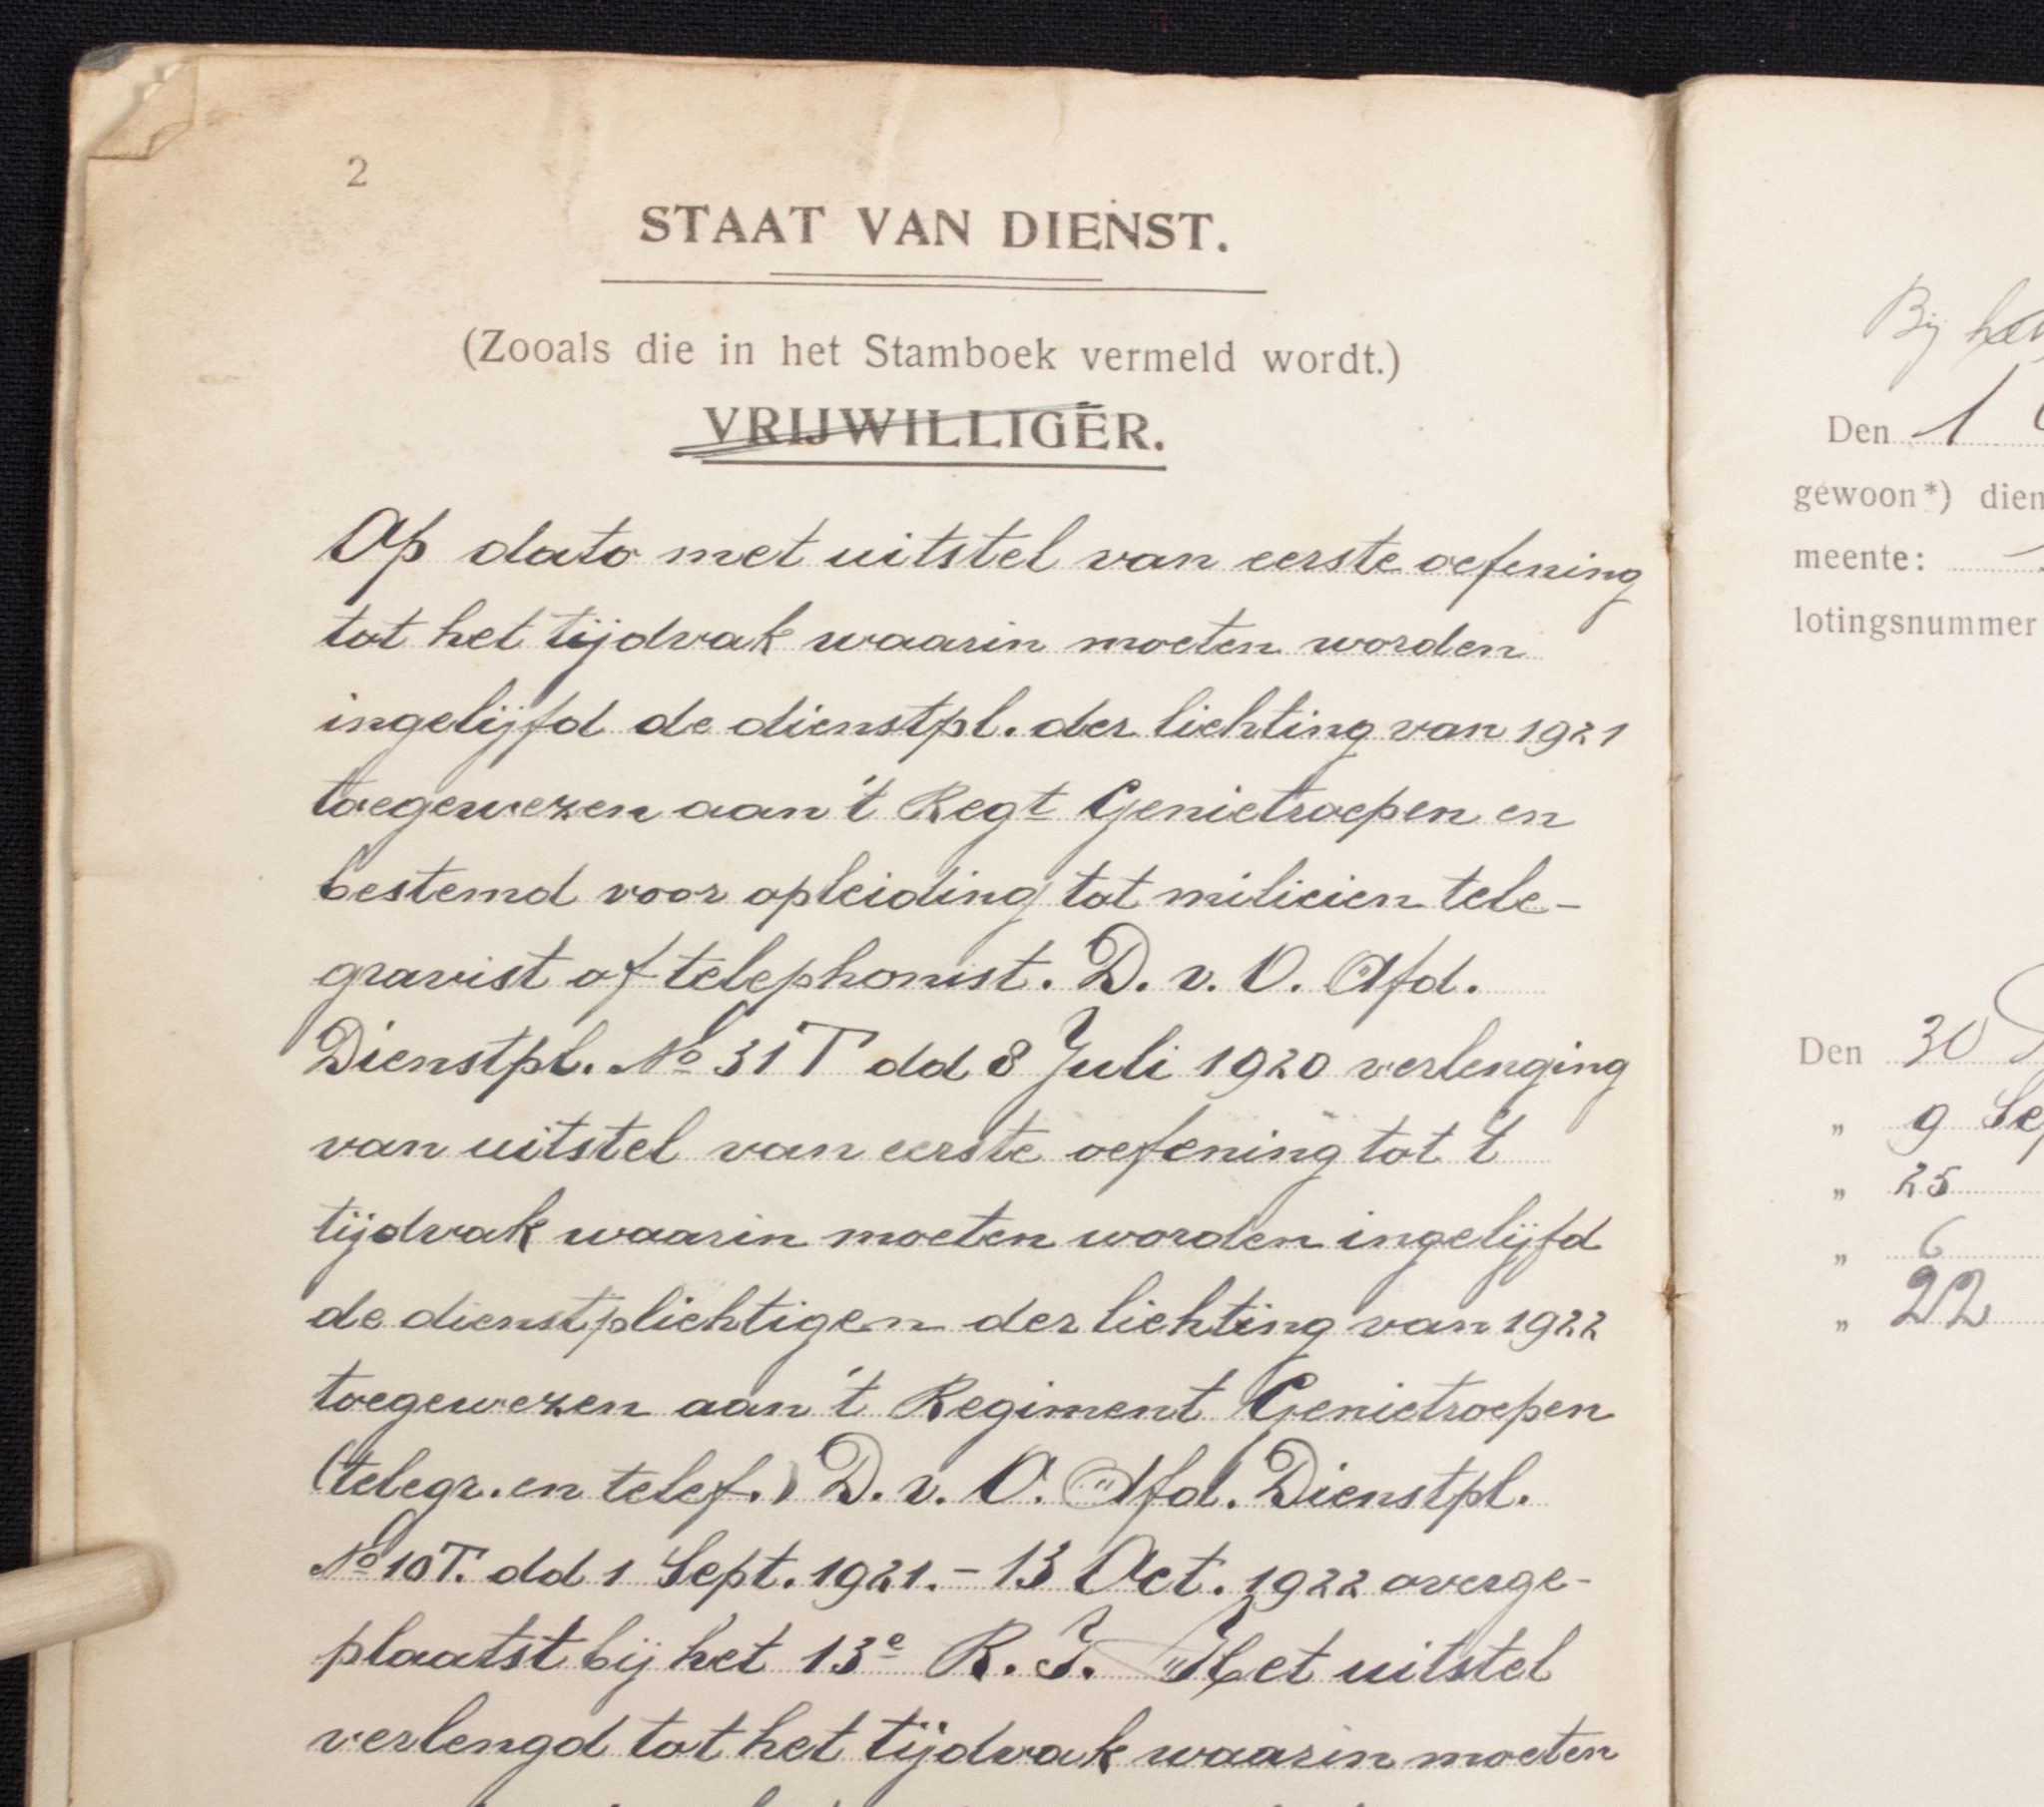 2
STAAT VAN DIENST.
(Zooals die in het Stamboek vermeld wordt.)
VRIJWILLIGER.
Op dato met uitstel van eerste oefening
tot het tijdvak waarin moeten worden
ingelijfd de dienstpl. der lichting van 1921
toegewezen aan 't Regt Genietroepen en
bestemd voor opleiding tot milicien tele-
gravist of telephonist. D. v. O. Afd.
Dienstpl. No 31 T dd 8 Juli 1920 verlenging
van uitstel van eerste oefening tot 't
tijdvak waarin moeten worden ingelijfd
de dienstplichtigen der lichting van 1922
toegewezen aan 't Regiment Genietroepen
(telegr. en telef.) D. v. O. Afd. Dienstpl.
No 10T. dd 1 Sept. 1921. - 13 Oct. 1922 overge-
plaatst bij het 13e R. I. Het uitstel
verlengd tot het tijdvak waarin moeten
Bij
Den 1
gewoon*) dien
meente:
lotingsnummer
Den 30
„ 9 Sep
„ 25
„ 6
„ 22